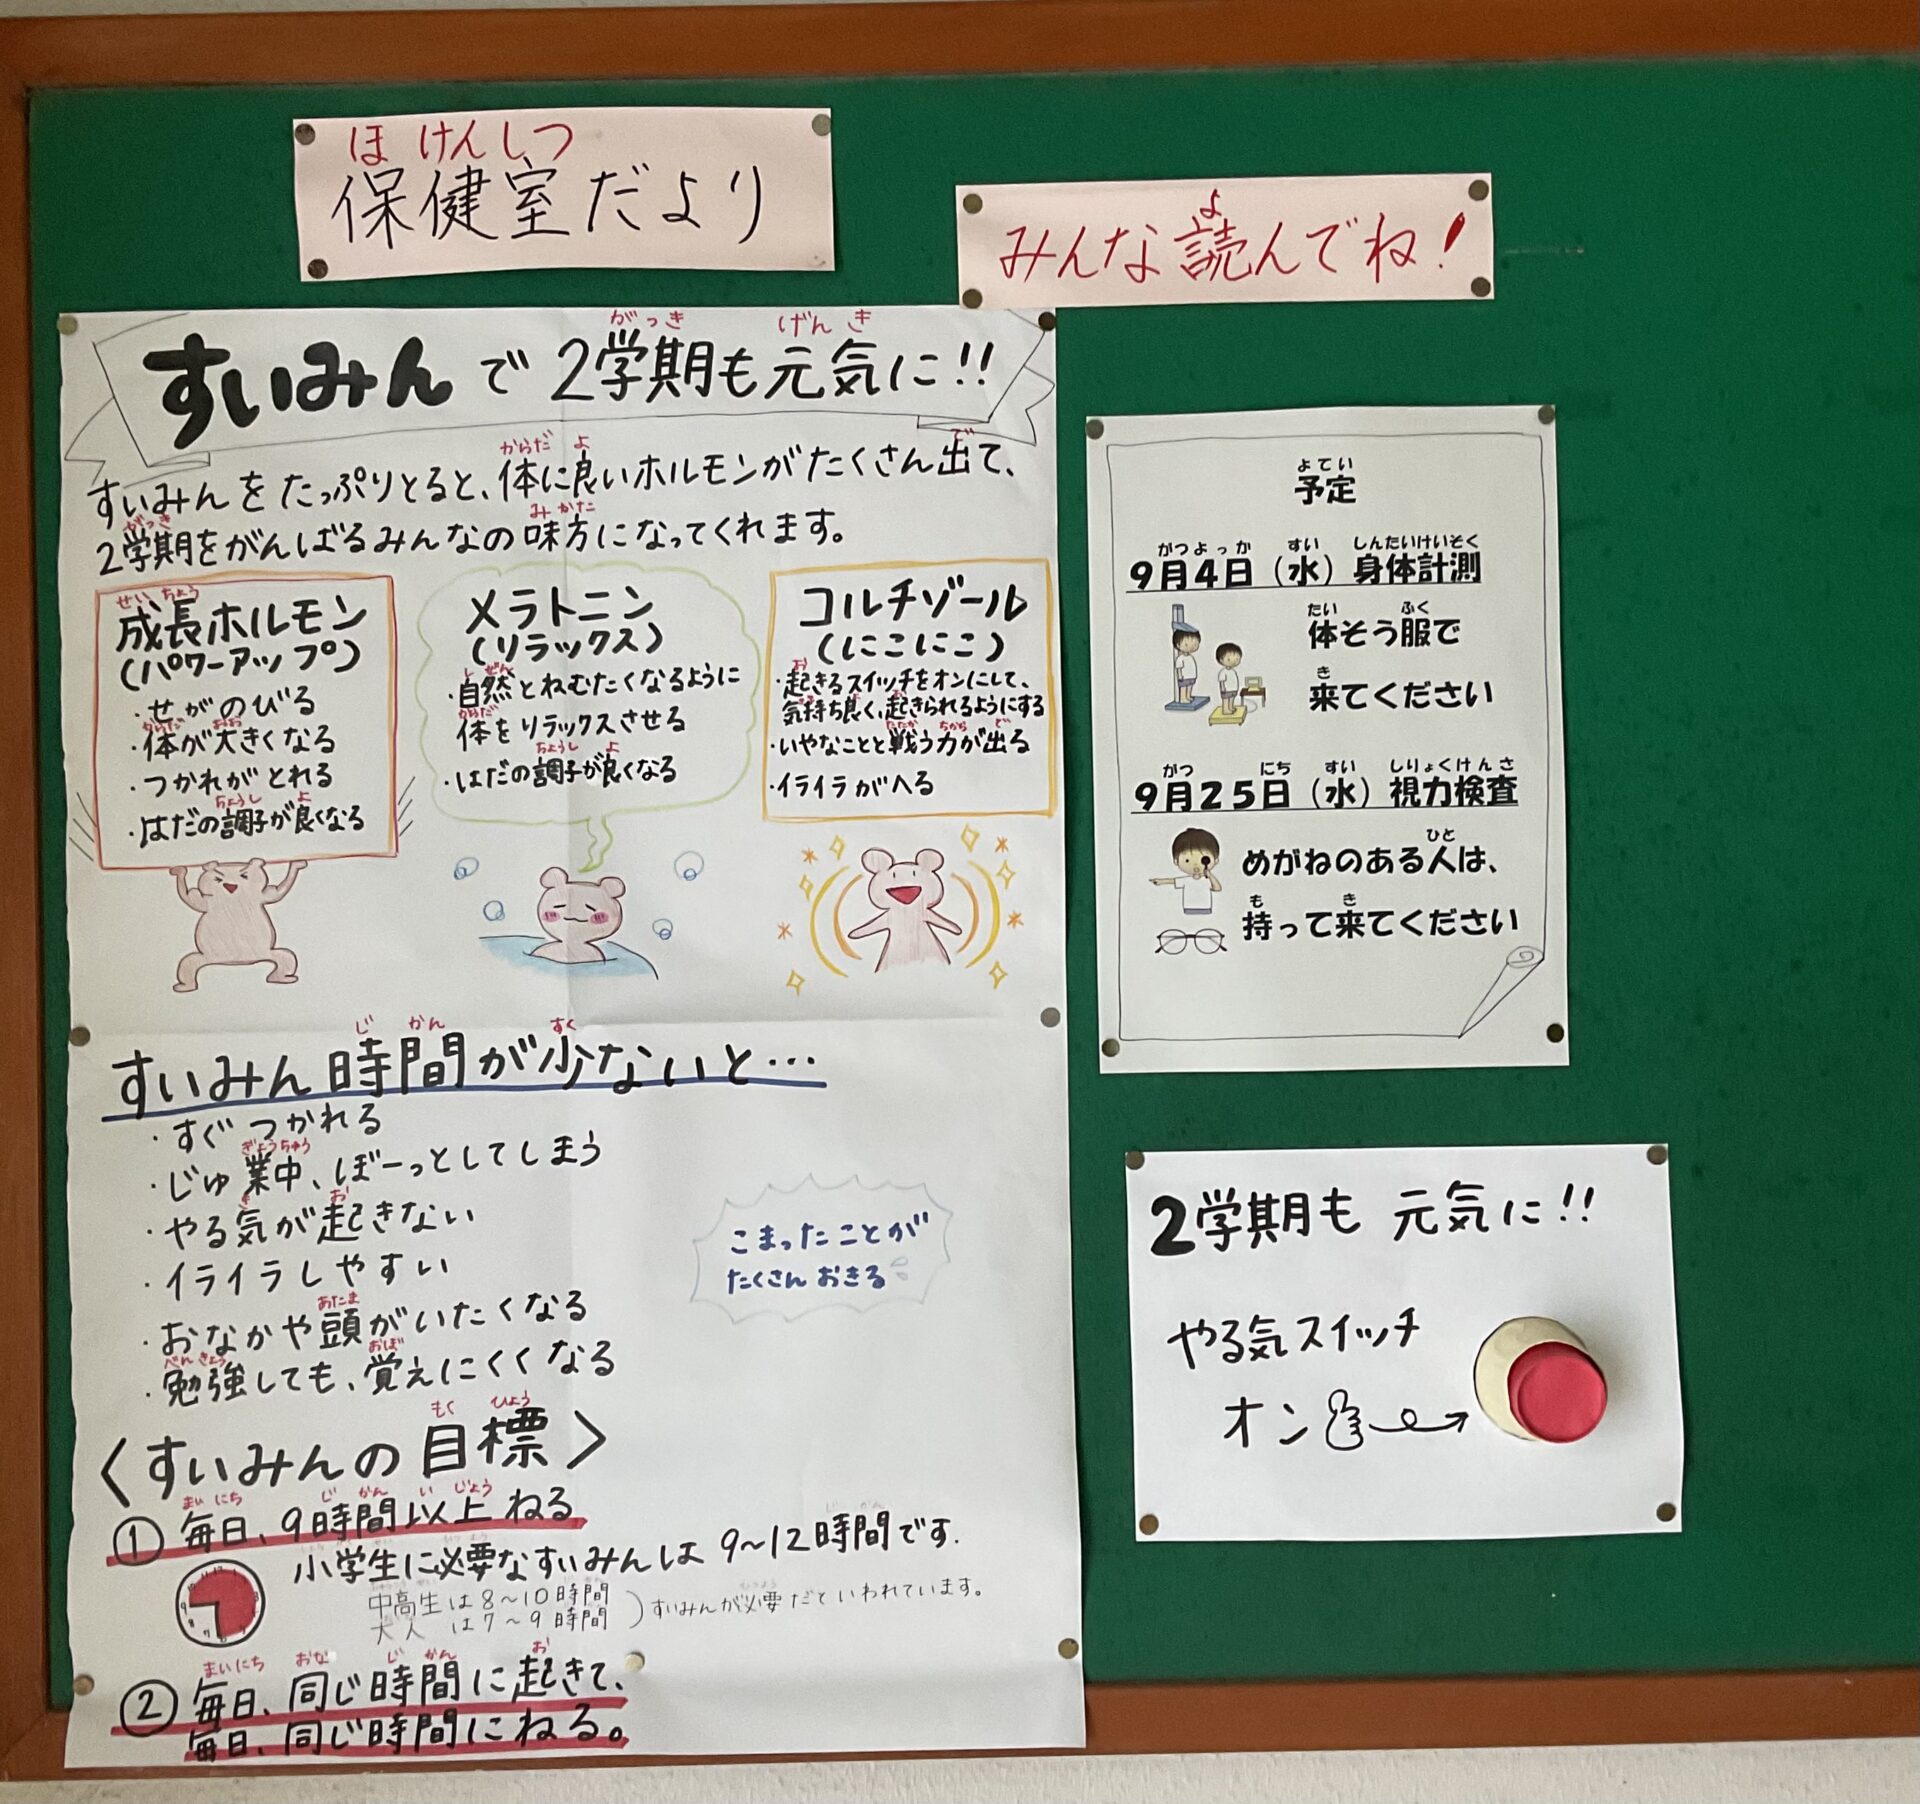 保健室だより
ほけんしつ
みんな読んでね!
よ
すいみんで2学期も元気に!!
がっき げんき
すいみんをたっぷりとると、体に良いホルモンがたくさん出て、
からだ よ で
2学期をがんばるみんなの味方になってくれます。
がっき みかた
成長ホルモン
せいちょう
(パワーアップ)
・せがのびる
・体が大きくなる
からだ おお
・つかれがとれる
・はだの調子が良くなる
ちょうし よ
メラトニン
(リラックス)
・自然とねむたくなるように
しぜん
体をリラックスさせる
からだ
・はだの調子が良くなる
ちょうし よ
コルチゾール
(にこにこ)
・起きるスイッチをオンにして、
お
気持ち良く、起きられるようにする
・いやなことと戦う力が出る
たたか ちから で
・イライラがへる
すいみん時間が少ないと…
じかん すく
・すぐつかれる
・じゅ業中、ぼーっとしてしまう
ぎょうちゅう
・やる気が起きない
き お
・イライラしやすい
・おなかや頭がいたくなる
あたま
・勉強しても、覚えにくくなる
べんきょう おぼ
こまったことが
たくさんおきる
〈すいみんの目標〉
もくひょう
① 毎日、9時間以上ねる
まいにち じかんいじょう
小学生に必要なすいみんは9~12時間です.
中高生は8~10時間
大人 は7~9時間
)すいみんが必要だといわれています。
② 毎日、同じ時間に起きて、
まいにち おな じかん お
毎日、同じ時間にねる。
予定
よてい
9月4日(水)身体計測
がつよっか すい しんたいけいそく
体そう服で
たい ふく
来てください
き
9月25日(水)視力検査
がつ にち すい しりょくけんさ
めがねのある人は、
ひと
持って来てください
も き
2学期も 元気に!!
やる気スイッチ
オン